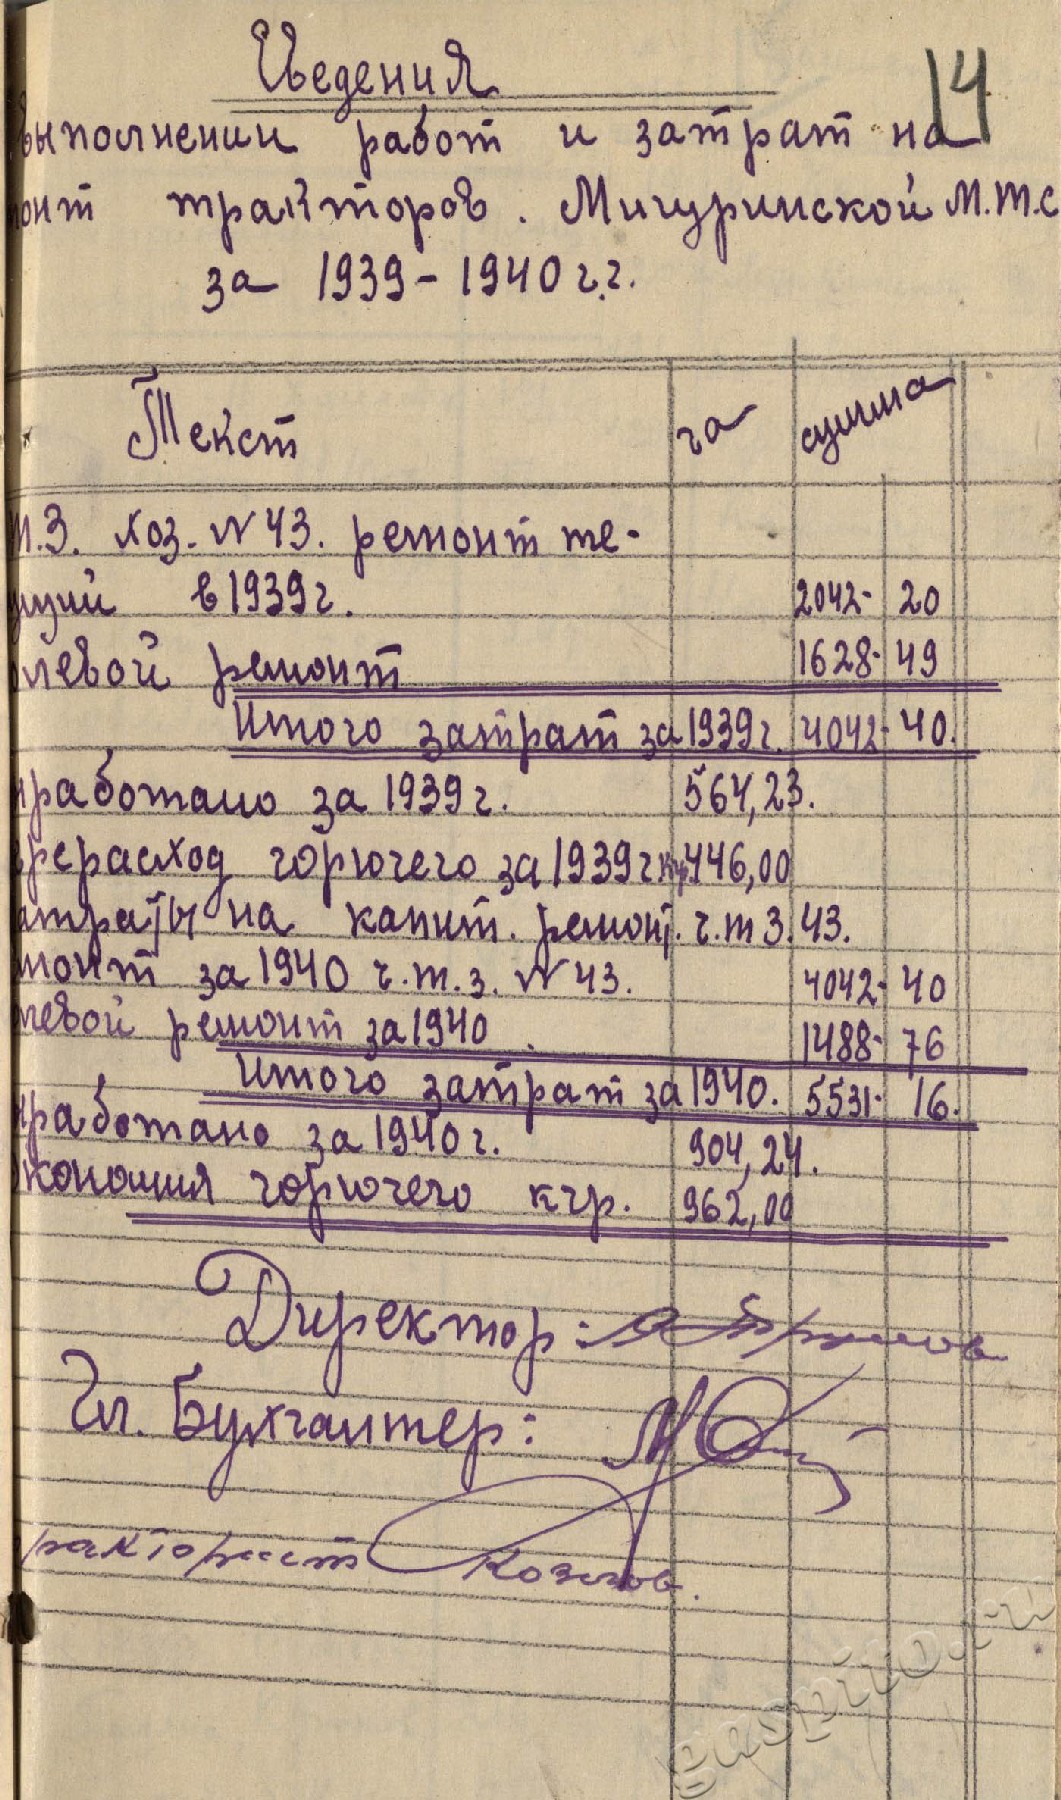 14
Сведения
выполнении работ и затрат на
монт тракторов. Мичуринской М.Т.С
за 1939-1940 г.г.
Текст га сумма
т.З. хоз. N 43. ремонт те-
ущий в 1939 г. 2042- 20
олевой ремонт 1628- 49
Итого затрат за 1939 г. 4042- 40.
работано за 1939 г. 564,23.
ерерасход горючего за 1939 г кг 446,00
атраты на капит. ремонт. ч.т З. 43.
монт за 1940 ч.т.з. N 43. 4042- 40
левой ремонт за 1940 1488- 76
Итого затрат за 1940. 5531- 16.
работано за 1940 г. 904,24.
кономия горючего кгр. 962,00
Директор:
Гл. Бухгалтер:
тракторист Козлов.
gaspito.ru